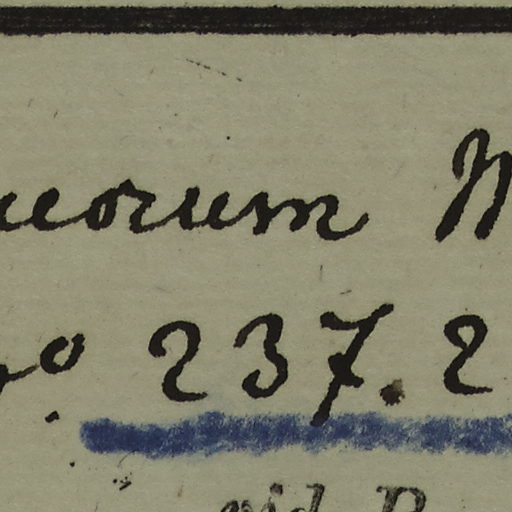 uorum M
o 237. 2
vid. P